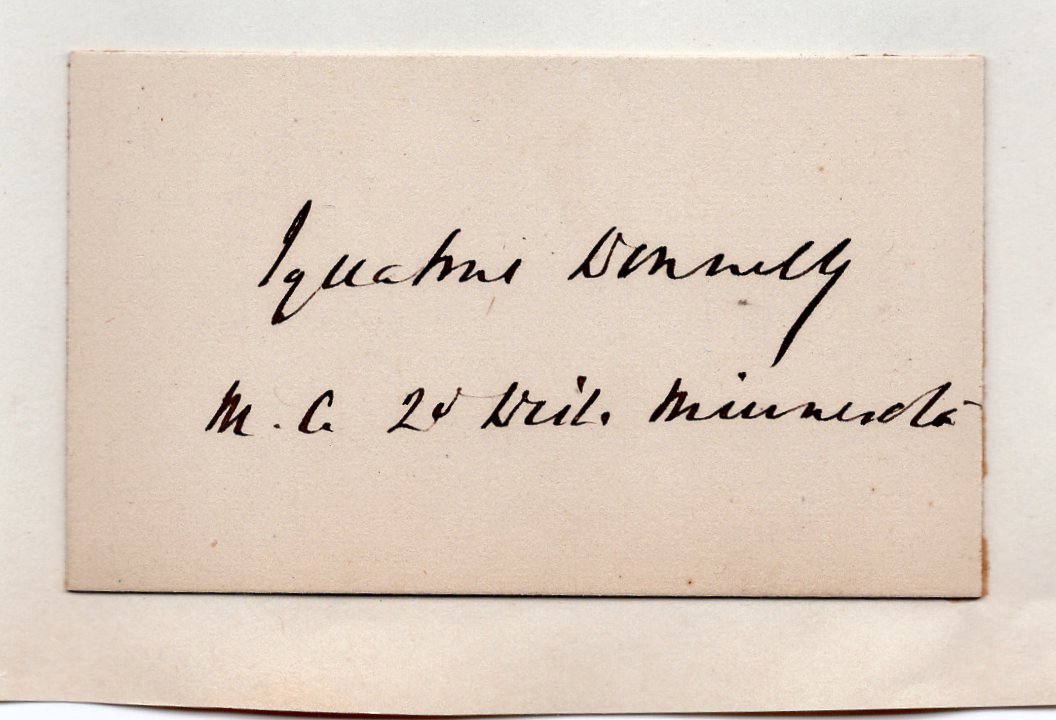 Ignatius Donnelly
M. C. 2d Dist. Minnesota